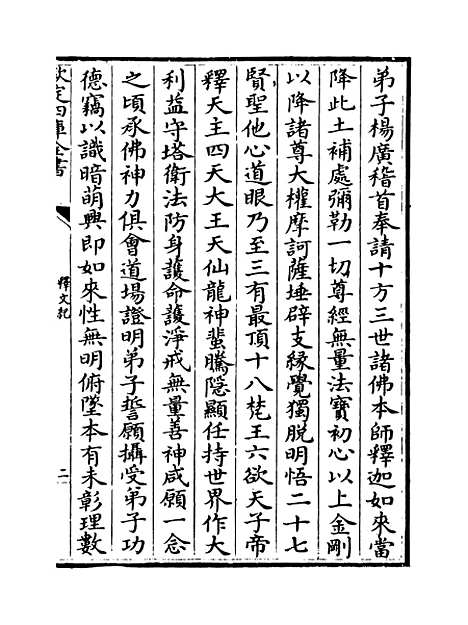 弟子楊廣稽首奉請十方三世諸佛本師釋迦如來當
降此土補處彌勒一切尊經無量法寶初心以上金剛
以降諸尊大權摩訶薩埵辟支緣覺獨脫明悟二十七
賢聖他心道眼乃至三有最頂十八梵王六欲天子帝
釋天主四天大王天仙龍神蜚騰隱顯任持世界作大
利益守塔衛法防身護命護淨戒無量善神咸願一念
之頃承佛神力俱會道場證明弟子誓願攝受弟子功
德竊以識暗萌興即如來性無明俯墜本有未彰理數
欽定四庫全書
釋文紀
二